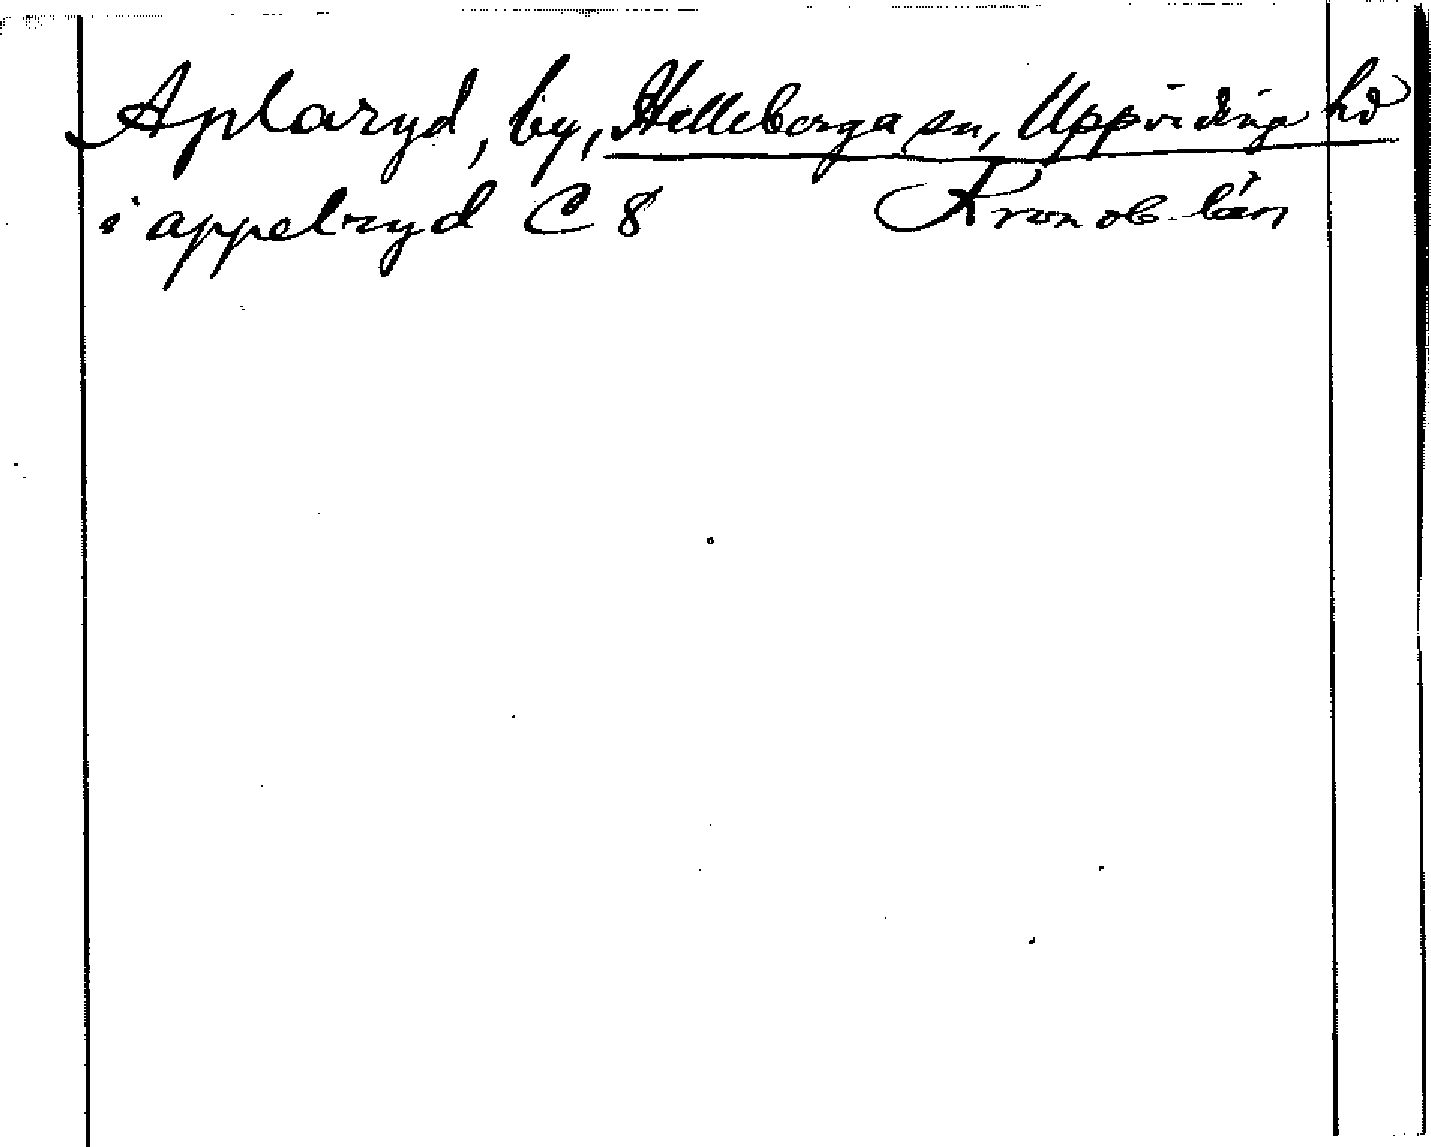 Aplaryd, by, Hälleberga sn, Uppvidinge hd
i appelryd C 8 Kronob. län